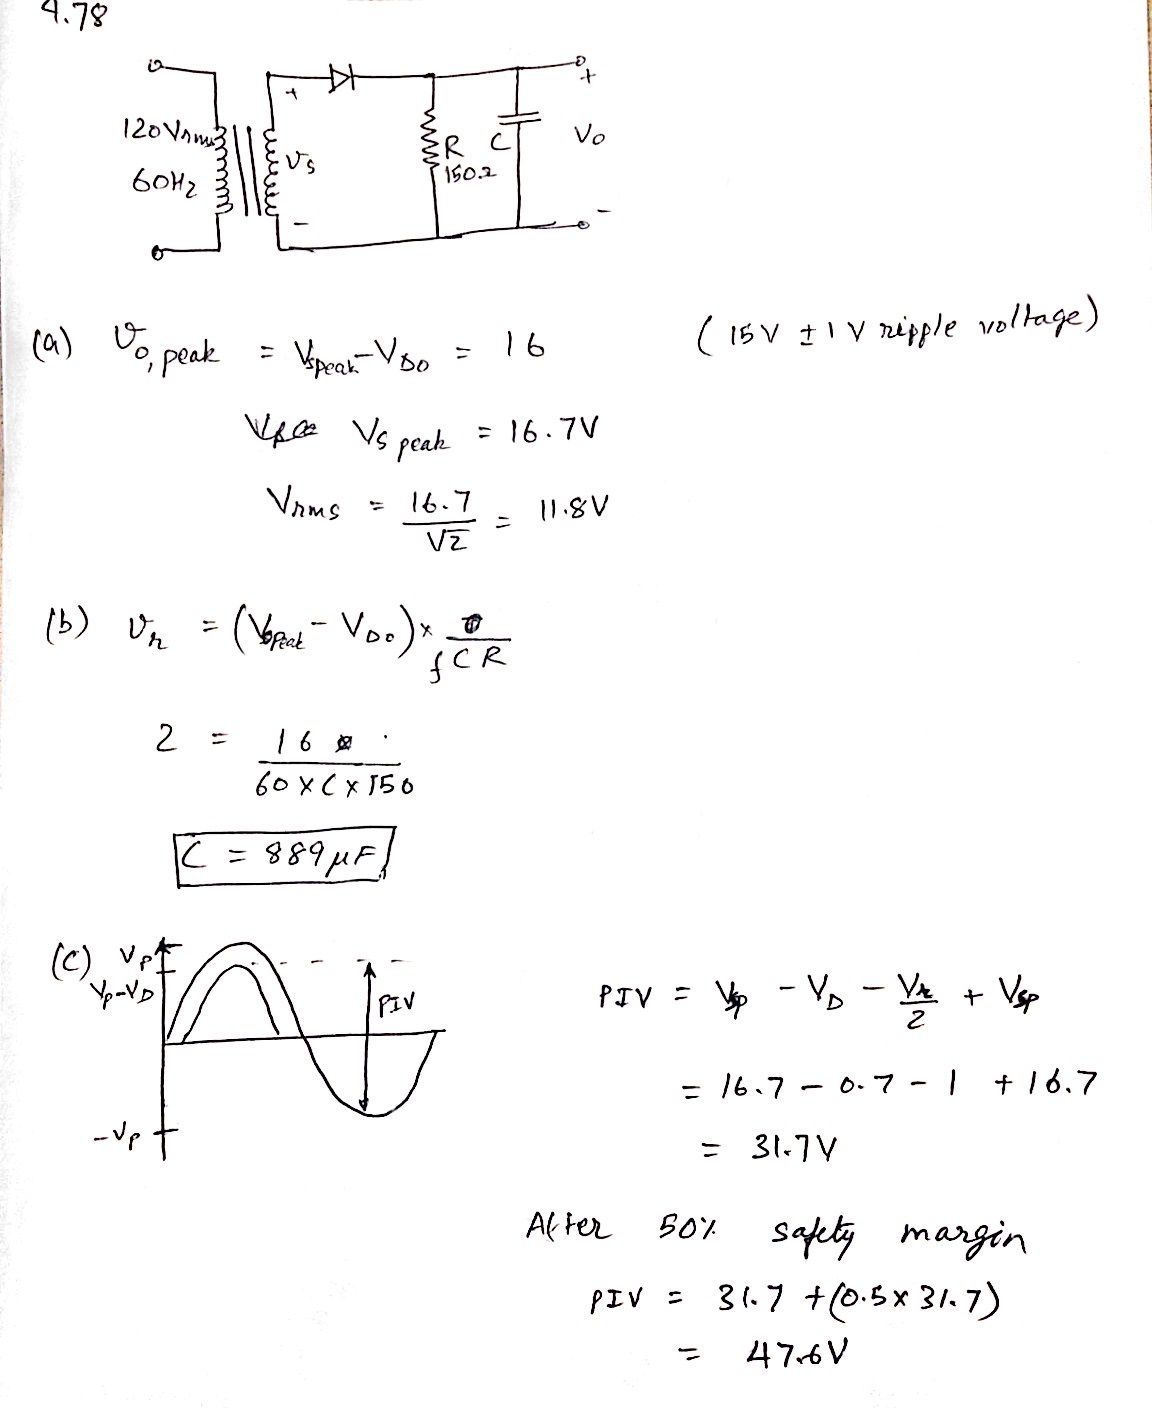 4.78
120 Vrms
60Hz
+
Vs
-
R
150Ω
C
+
Vo
-
(a) Vo, peak = Vspeak - VDo = 16 (15V ± 1V ripple voltage)
Vs peak = 16.7V
Vrms = 16.7 / √2 = 11.8V
(b) Vr = (Vspeak - VDo) × / fCR
2 = 16 / 60 × C × 150
C = 889 μF
(c) Vp
Vp-VD
-Vp
PIV
PIV = Vsp - VD - Vr / 2 + Vsp
= 16.7 - 0.7 - 1 + 16.7
= 31.7V
After 50% safety margin
PIV = 31.7 + (0.5 × 31.7)
= 47.6V